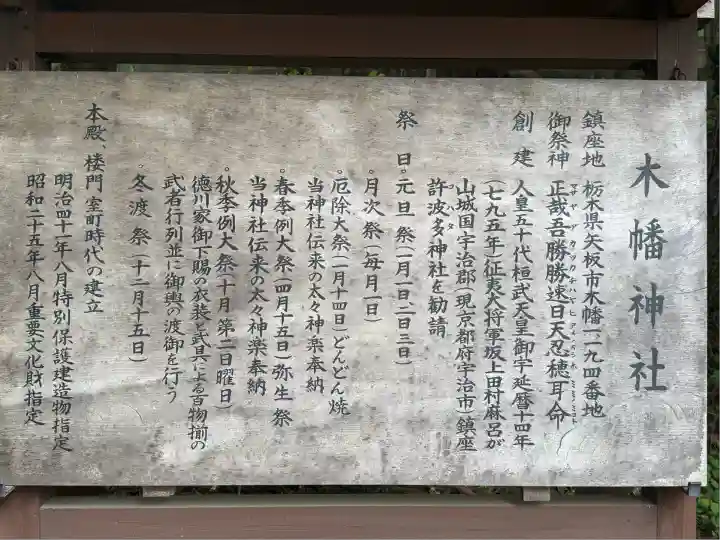 木幡神社
鎮座地 栃木県矢板市木幡一一九四番地
御祭神 正哉吾勝勝速日天忍穂耳命
創建 人皇五十代桓武天皇御宇延暦十四年
(七九五年)征夷大将軍坂上田村麻呂が
山城国宇治郡(現京都府宇治市)鎮座
許波多神社を勧請
コハタ
祭日 。元旦祭(一月一日、二日、三日)
。月次祭(毎月一日)
。厄除大祭(一月十四日)どんどん焼
当神社伝来の太々神楽奉納
。春季例大祭(四月十五日)弥生祭
当神社伝来の太々神楽奉納
。秋季例大祭(十月第二日曜日)
徳川家御下賜の衣装と武具による百物揃の
武者行列並に御輿の渡御を行う
。冬渡祭(十二月十五日)
本殿、楼門 室町時代の建立
明治四十一年八月特別保護建造物指定
昭和二十五年八月重要文化財指定